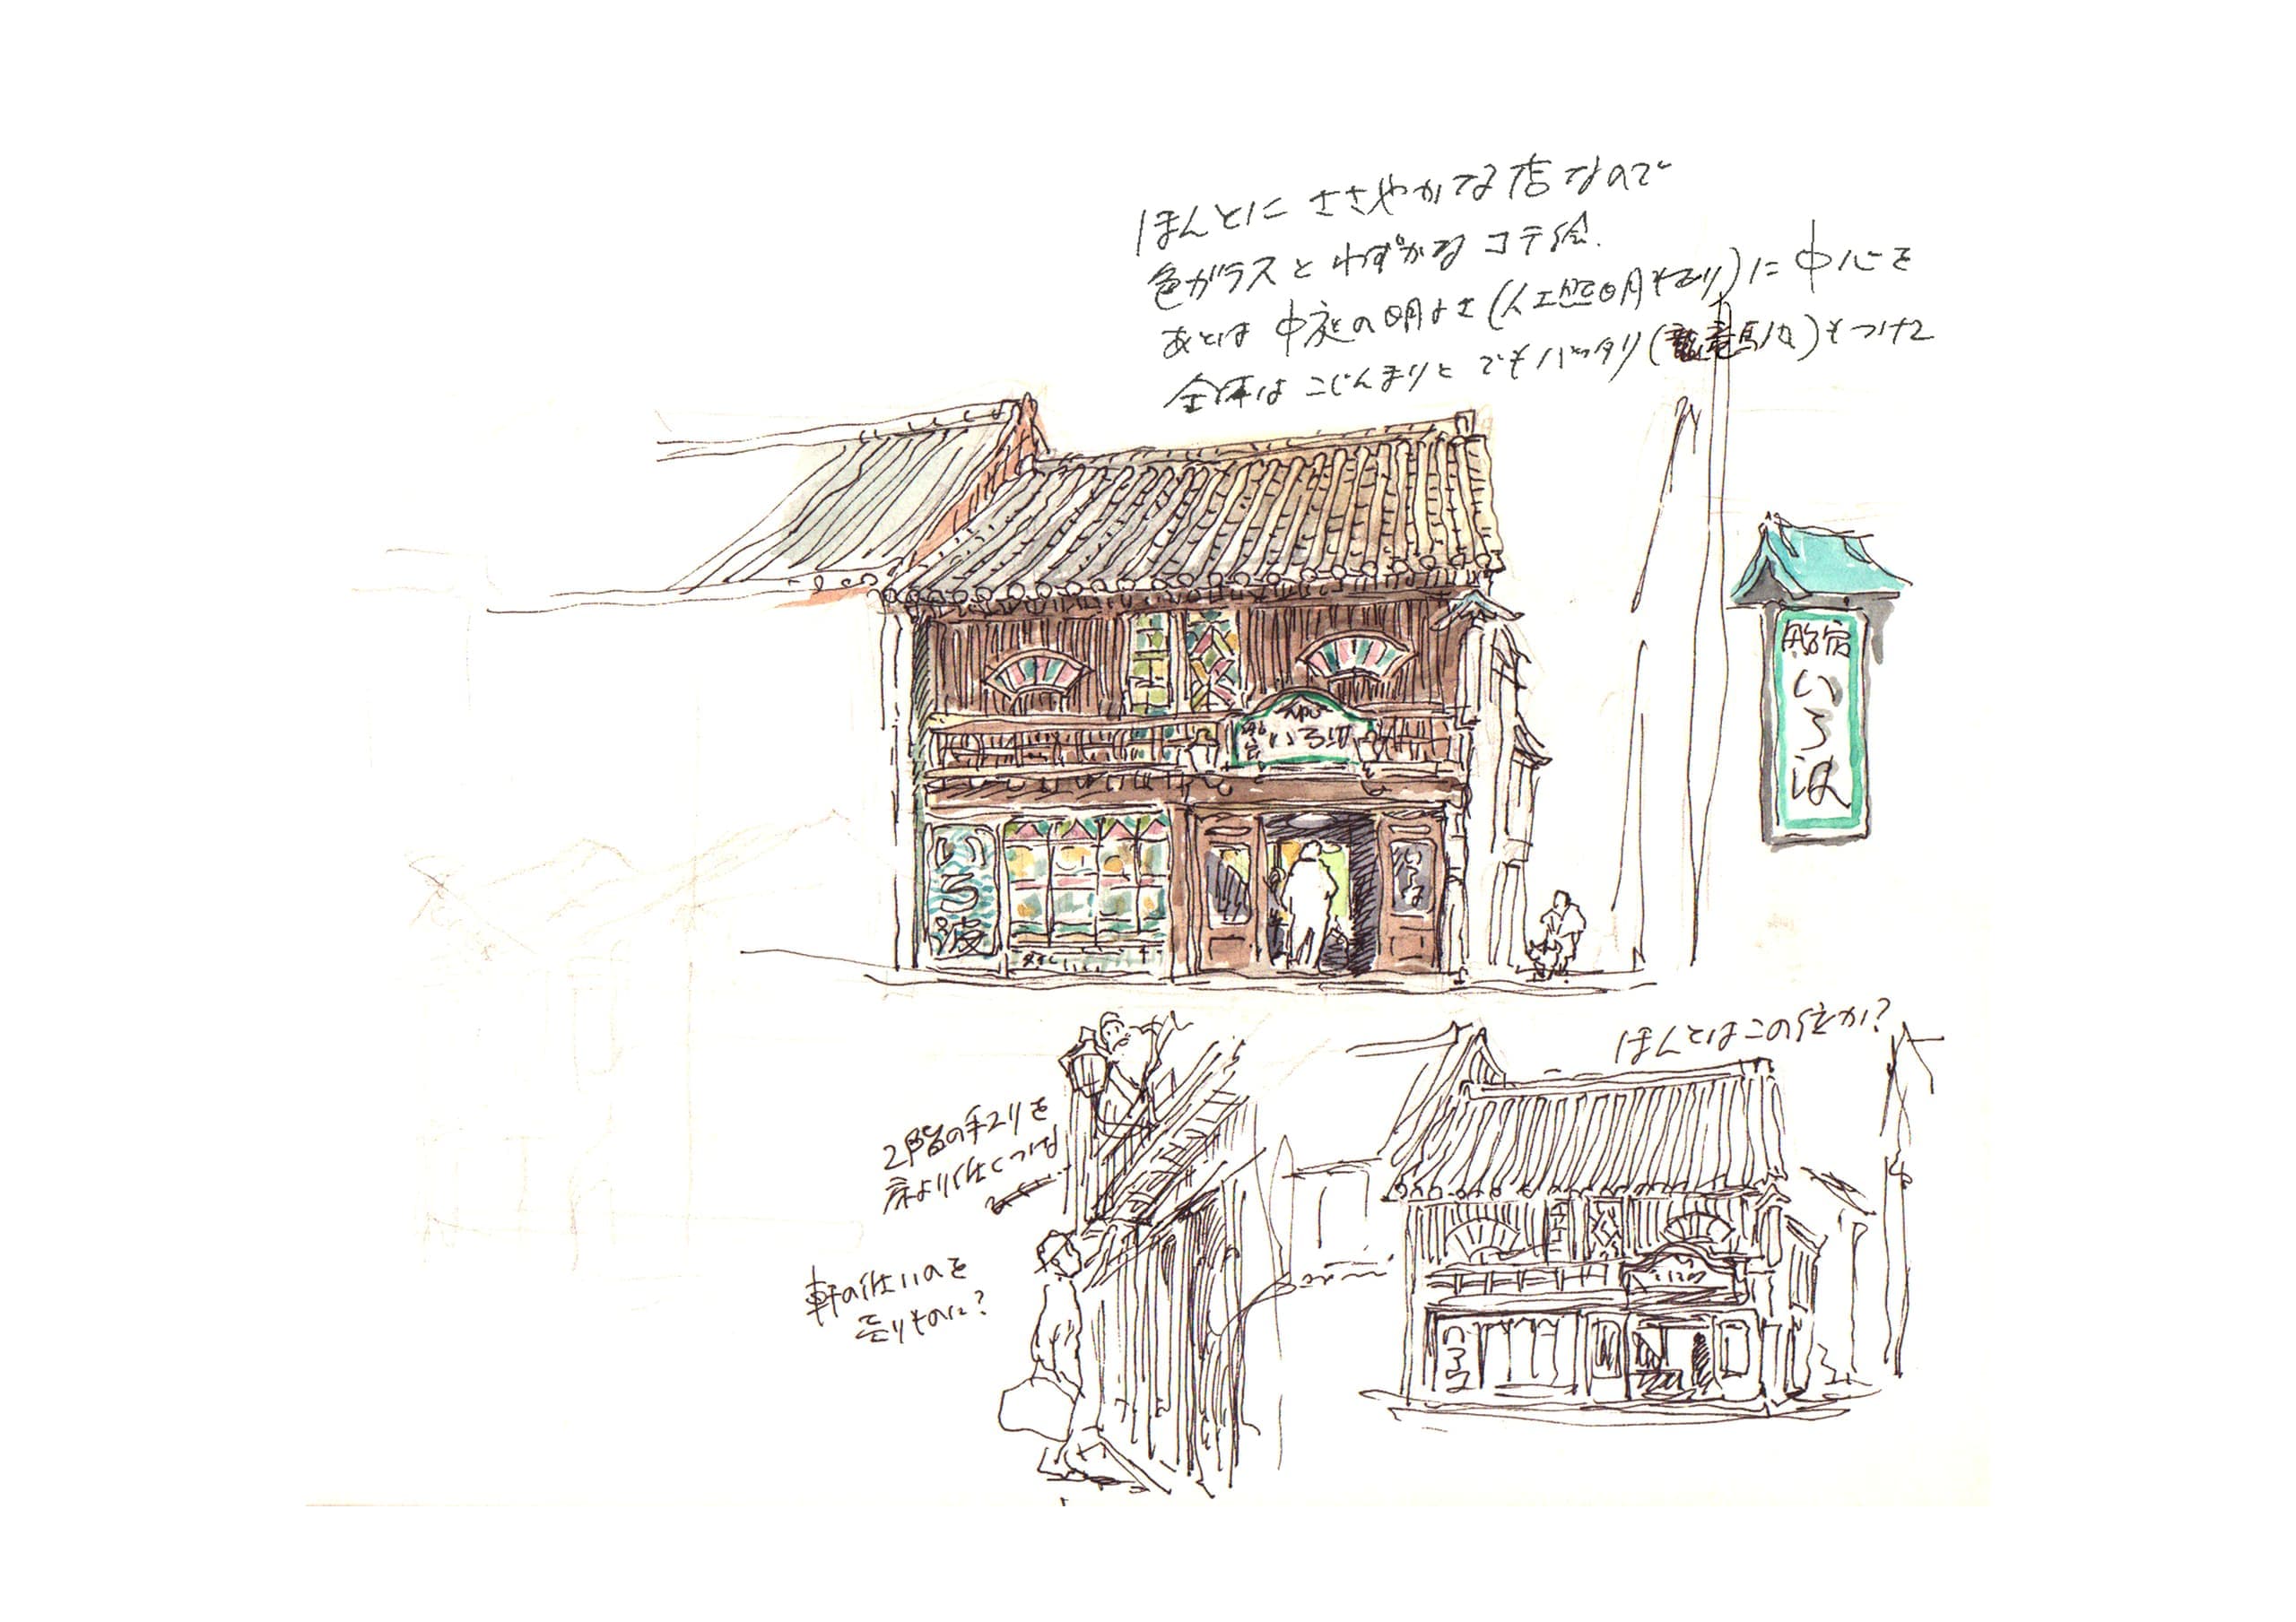 ほんとに ささやかな店なので
色ガラスと わずかな コテ絵.
あとは 中庭の明るさ(人工照明もあり)に中心を
全体は こじんまりと でもバッタリ(竜馬の)もつけて
船宿
いろ波
船宿 いろは
いろ波
いろは
ほんとはこの位か?
2階の手スリを
床より低くつける
軒の低いのを
売りものに?
いろは